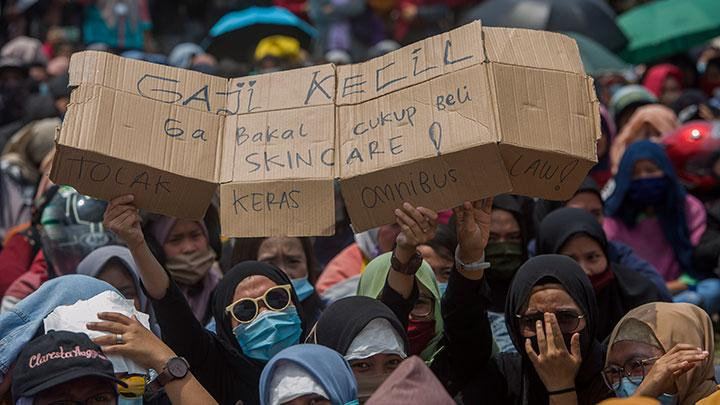 GAJI KECIL
Ga Bakal cukup Beli
SKINCARE!
TOLAK KERAS OMNIBUS LAW!
Claresta